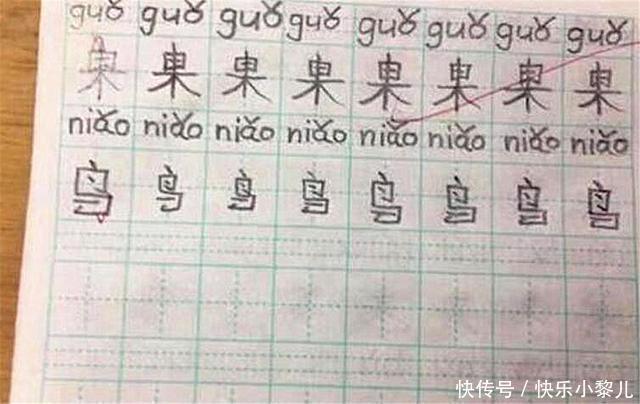 guǒ guǒ guǒ guǒ guǒ guǒ guǒ guǒ
果 果 果 果 果 果 果 果
niǎo niǎo niǎo niǎo niǎo niǎo niǎo niǎo
鸟 鸟 鸟 鸟 鸟 鸟 鸟 鸟
快传号 / 快乐小黎儿